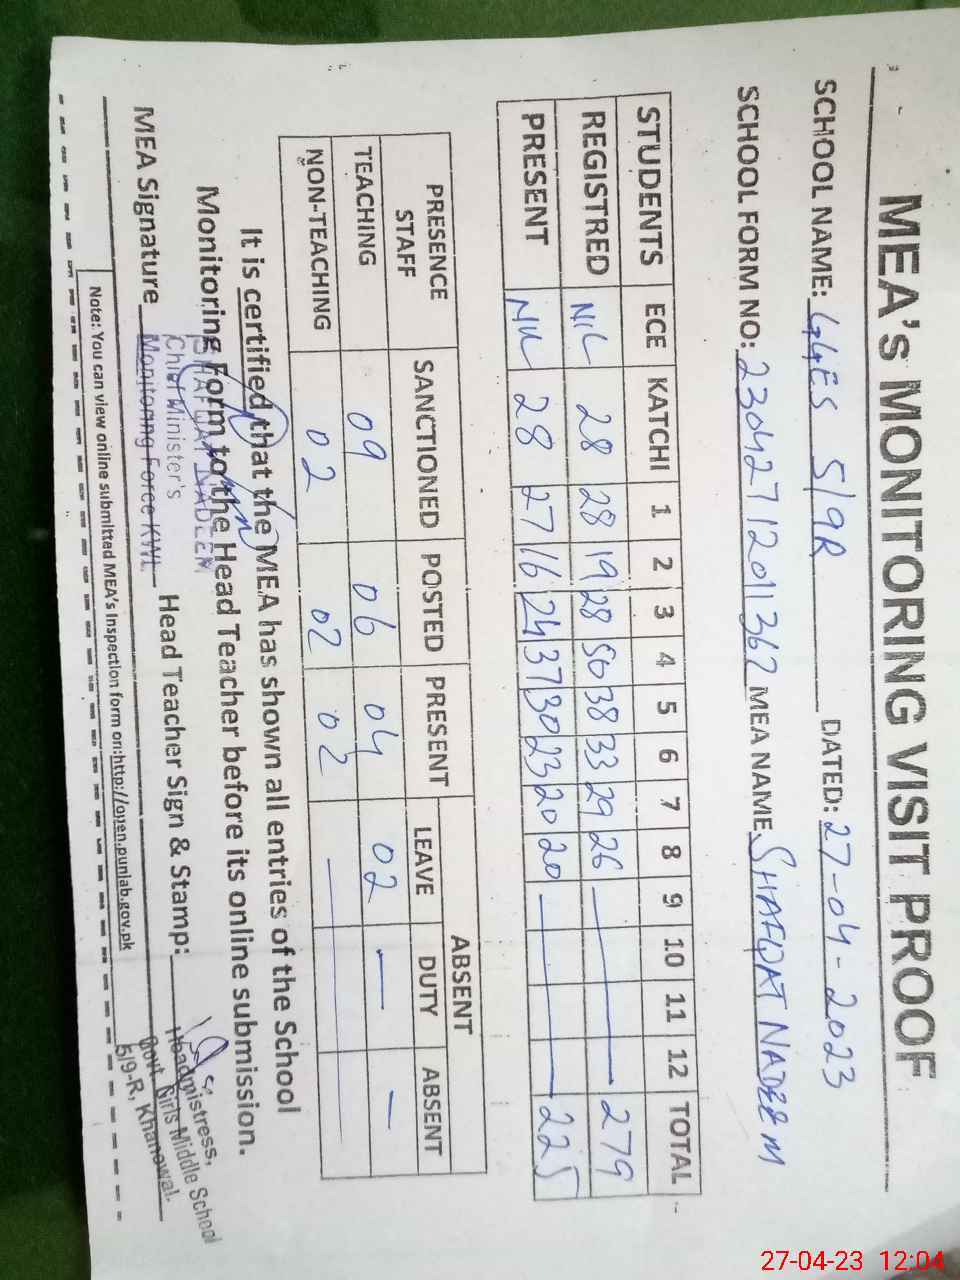 MEA's MONITORING VISIT PROOF
SCHOOL NAME: GGES 5/9R DATED: 27-04-2023
SCHOOL FORM NO: 23042712011367 MEA NAME SHAFQAT NADEEM
STUDENTS ECE KATCHI 1 2 3 4 5 6 7 8 9 10 11 12 TOTAL
REGISTRED NIL 28 28 19 28 50 38 33 29 26 — 279
PRESENT NIL 28 27 16 24 37 30 23 20 20 — 225
PRESENCE STAFF SANCTIONED POSTED PRESENT ABSENT
LEAVE DUTY ABSENT
TEACHING 09 06 04 02 — —
NON-TEACHING 02 02 02 —
It is certified that the MEA has shown all entries of the School
Monitoring Form to the Head Teacher before its online submission.
SHAFQAT NADEEM
Chief Minister's
Monitoring Force KWL
MEA Signature Head Teacher Sign & Stamp:
Headmistress,
Govt. Girls Middle School
5/9-R, Khanewal.
Note: You can view online submitted MEA's Inspection form on:http://open.punlab.gov.pk
27-04-23 12:04